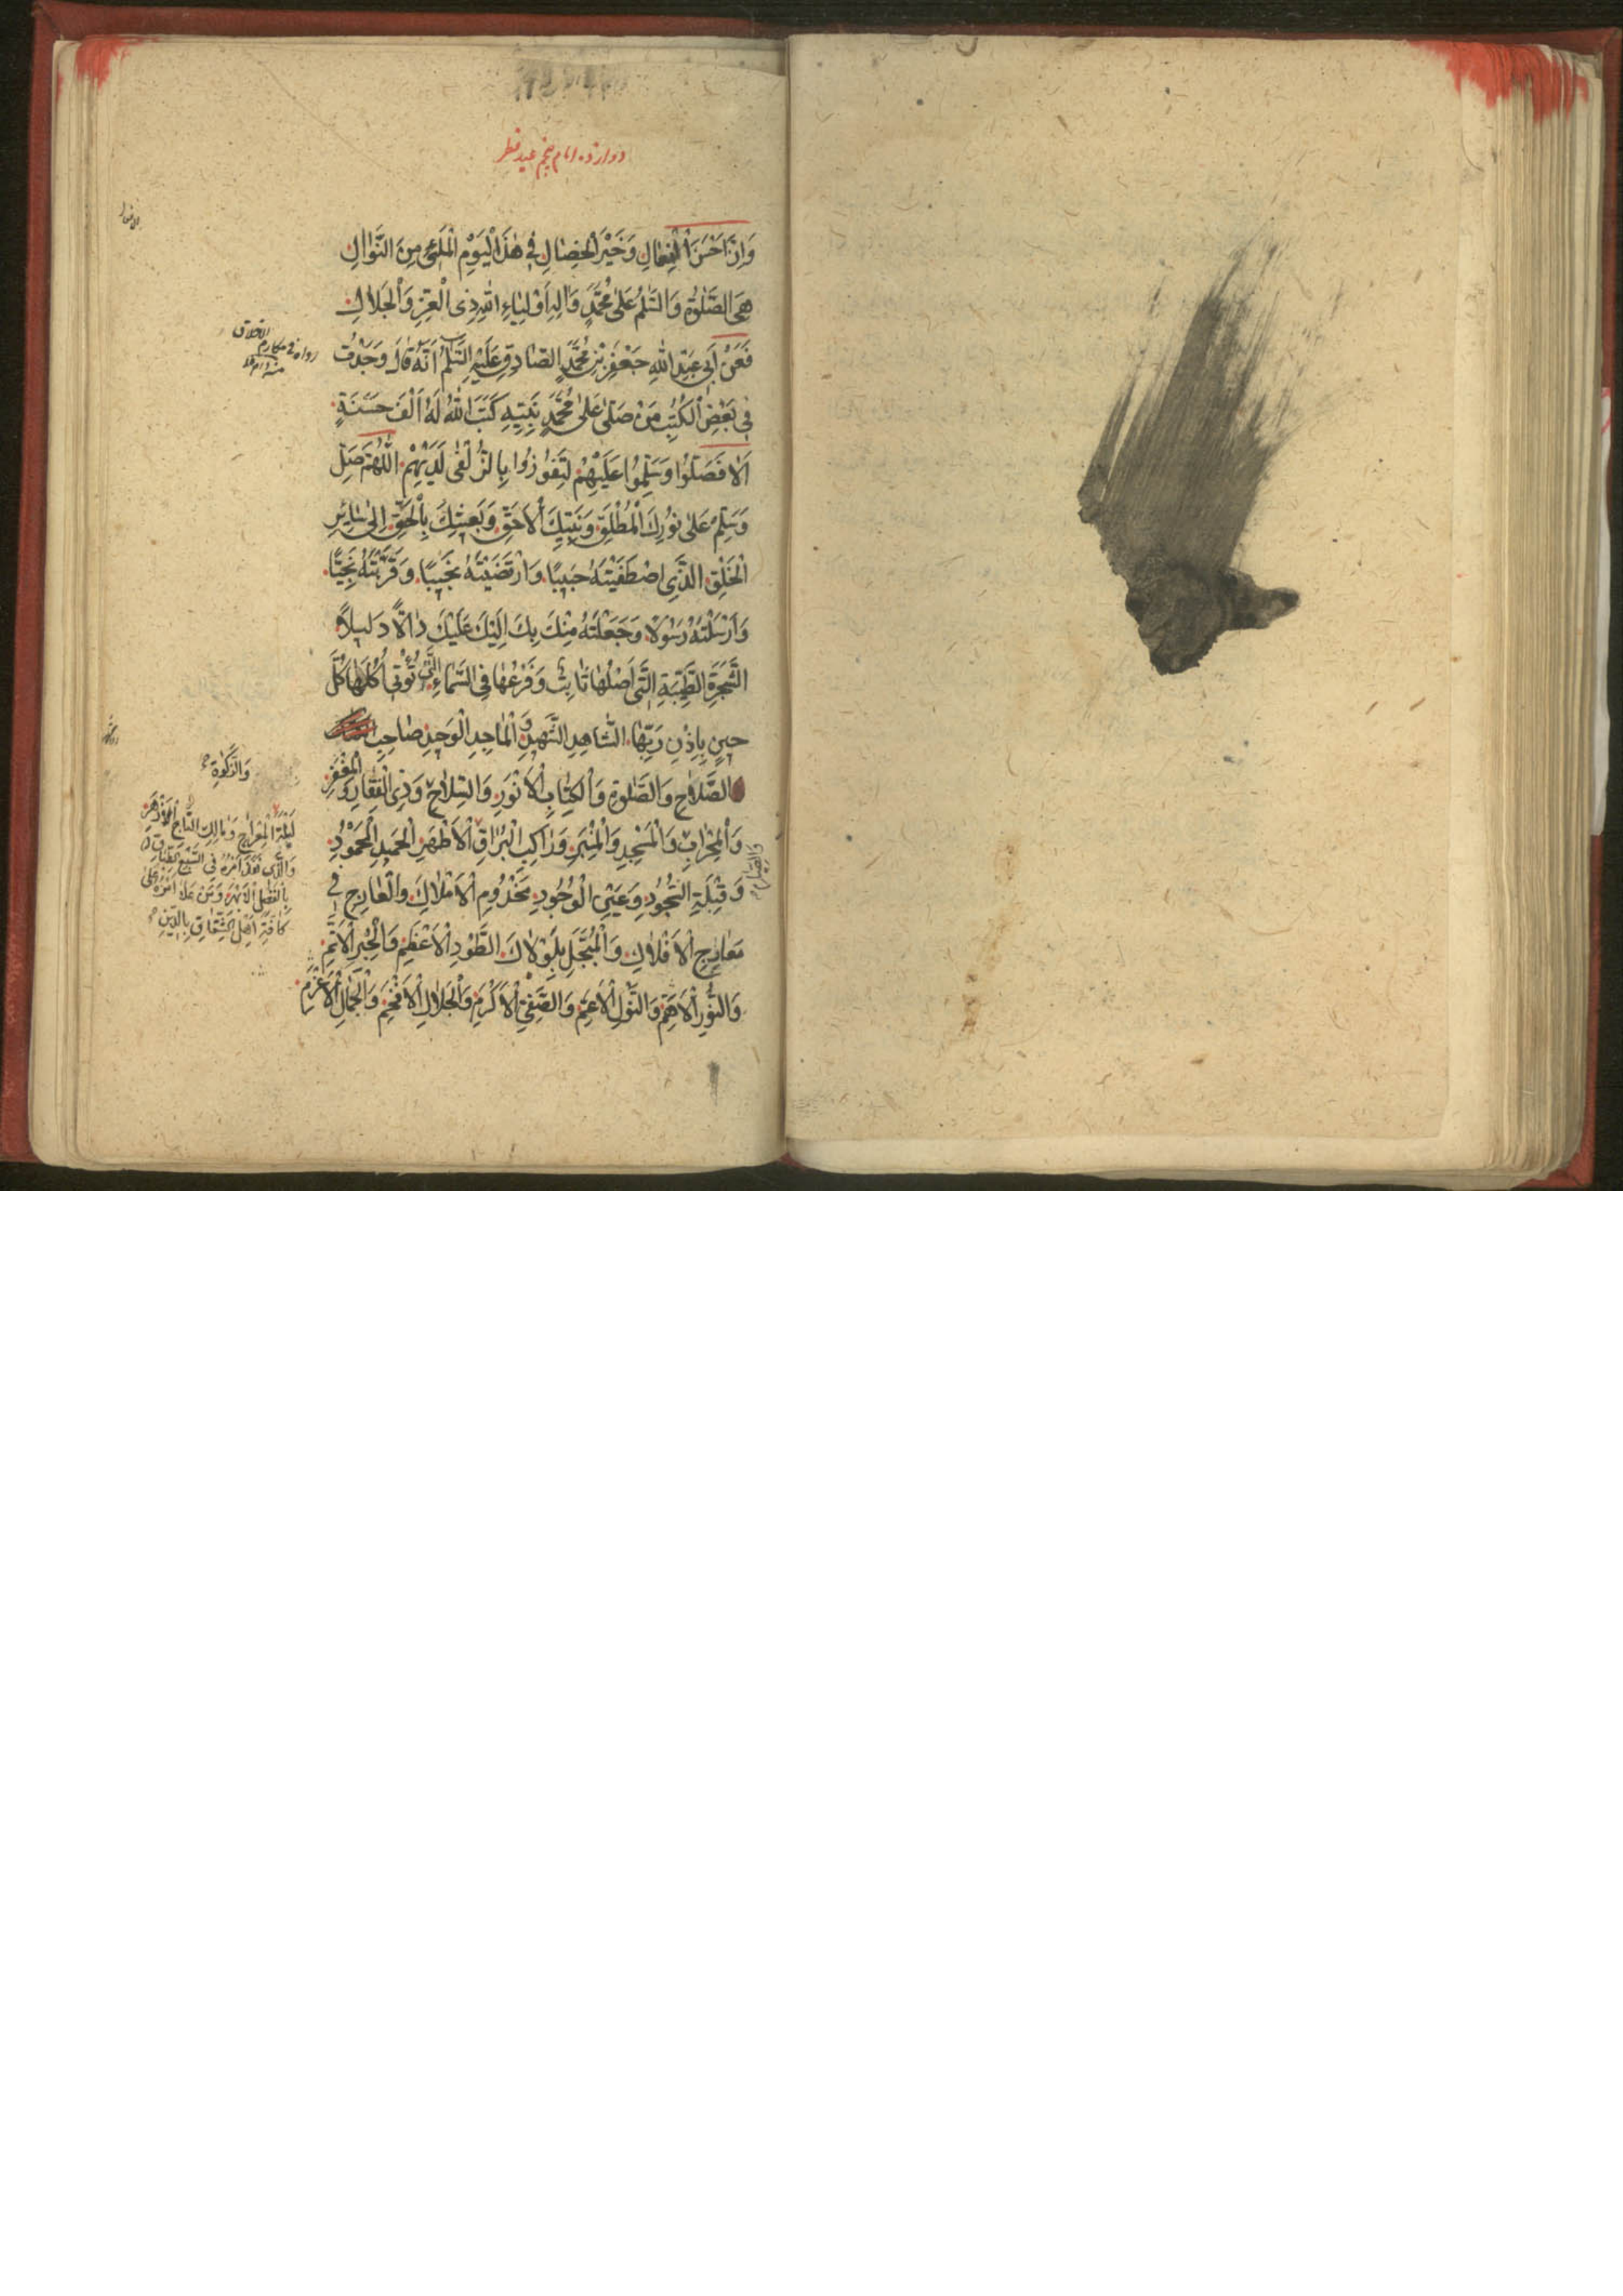 دوازده امام پنجم عید فطر
وَاِنَّ اَحْسَنَ الْفِعٰالِ وَخَيْرَ الْخِصٰالِ فِي هٰذَا الْيَوْمِ الْمَلِئِ مِنَ النَّوٰالِ
هِيَ الصَّلٰوةُ وَالسَّلٰمُ عَلٰى مُحَمَّدٍ وَاٰلِهِ اَوْلِيٰاءِ اللّٰهِ ذِي الْعِزِّ وَالْجَلاٰلِ
فَعَنْ اَبِي عَبْدِ اللّٰهِ جَعْفَرِ بْنِ مُحَمَّدٍ الصّٰادِقِ عَلَيْهِ السَّلٰمُ اَنَّهُ قٰالَ وَجَدْتُ
فِي بَعْضِ الْكُتُبِ مَنْ صَلّٰى عَلٰى مُحَمَّدٍ نَبِيِّهِ كَتَبَ اللّٰهُ لَهُ اَلْفَ حَسَنَةٍ
اَلاٰ فَصَلُّوا وَسَلِّمُوا عَلَيْهِمْ لِتَفُوزُوا بِالزُّلْفٰى لَدَيْهِمْ اَللّٰهُمَّ صَلِّ
وَسَلِّمْ عَلٰى نُورِكَ الْمُطْلَقِ وَنَبِيِّكَ الْاَحَقِّ وَبَعِيثِكَ بِالْحَقِّ اِلٰى سٰائِرِ
الْخَلْقِ الَّذِي اصْطَفَيْتَهُ حَبِيبًا وَارْتَضَيْتَهُ نَجِيبًا وَقَرَّبْتَهُ نَجِيًّا
وَاَرْسَلْتَهُ رَسُولًا وَجَعَلْتَهُ مِنْكَ بِكَ اِلَيْكَ عَلَيْكَ دٰالًّا دَلِيلًا
الشَّجَرَةِ الطَّيِّبَةِ الَّتِي اَصْلُهٰا ثٰابِتٌ وَفَرْعُهٰا فِي السَّمٰاءِ الَّتِي تُؤْتِي اُكُلَهٰا كُلَّ
حِينٍ بِاِذْنِ رَبِّهٰا الشّٰاهِدِ الشَّهِيدِ وَالْمٰاجِدِ الْوَحِيدِ صٰاحِبِ
الصَّلاٰحِ وَالصَّلٰوةِ وَالْكِتٰابِ الْاَنْوَرِ وَالسِّلاٰحِ وَذِي الْفَقٰارِ وَالْمِغْفَرِ
وَالْمِحْرٰابِ وَالْمَسْجِدِ وَالْمِنْبَرِ وَرٰاكِبِ الْبُرٰاقِ الْاَطْهَرِ الْحَمِيدِ الْمَحْمُودِ
وَقِبْلَةِ السُّجُودِ وَعَيْنِ الْوُجُودِ مَخْدُومِ الْاَمْلاٰكِ وَالْعٰارِجِ فِي
مَعٰارِجِ الْاَفْلاٰكِ وَالْمُبَجَّلِ بِلَوْلاٰكَ الطَّوْدِ الْاَعْظَمِ وَالْحِبْرِ الْاَتَمِّ
وَالنُّورِ الْاَهَمِّ وَالنَّوْلِ الْاَعَمِّ وَالصَّفِيِّ الْاَكْرَمِ وَالْجَلاٰلِ الْاَفْخَمِ وَالْجَمٰالِ
رواه فی مکارم الاخلاق
وَالزَّكٰوةِ
لَيْلَةَ الْمِعْرٰاجِ وَمٰالِكِ التّٰاجِ الْاَزْهَرِ
وَالَّذِي نَفَذَ اَمْرُهُ فِي السَّبْعِ الطِّبٰاقِ
بِالْفَضْلِ الْاَبْهَرِ وَمَنْ عَلاٰ اَمْرُهُ عَلٰى
كٰافَّةِ اَهْلِ الشِّقٰاقِ بِالدِّينِ
وَالصِّيٰامِ